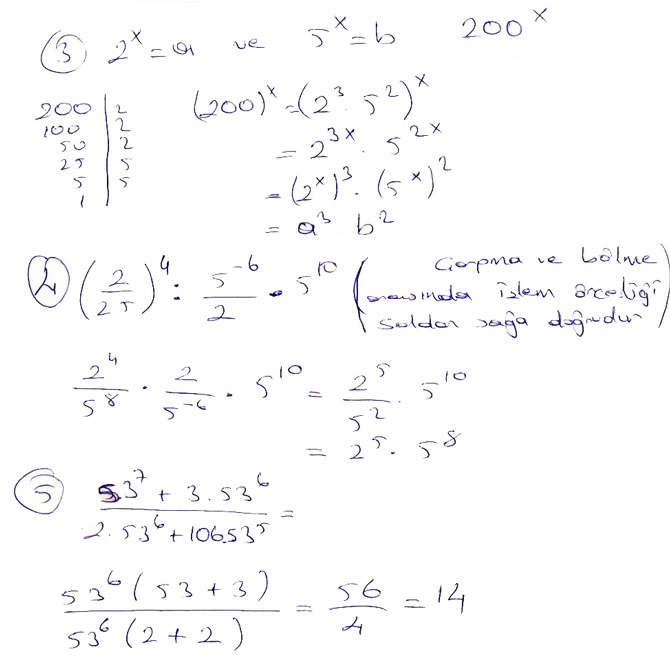 ③ 2^x = a ve 5^x = b 200^x
200 | 2
100 | 2
50 | 2
25 | 5
5 | 5
1
(200)^x = (2^3 · 5^2)^x
= 2^{3x} · 5^{2x}
= (2^x)^3 · (5^x)^2
= a^3 b^2
④ (2/25)^4 : 5^{-6}/2 · 5^{10} (Çarpma ve bölme
arasında işlem önceliği
soldan sağa doğrudur)
2^4/5^8 · 2/5^{-6} · 5^{10} = 2^5/5^2 · 5^{10}
= 2^5 · 5^8
⑤ (53^7 + 3.53^6)/(2.53^6 + 106.53^5) =
53^6 (53 + 3)/53^6 (2 + 2) = 56/4 = 14